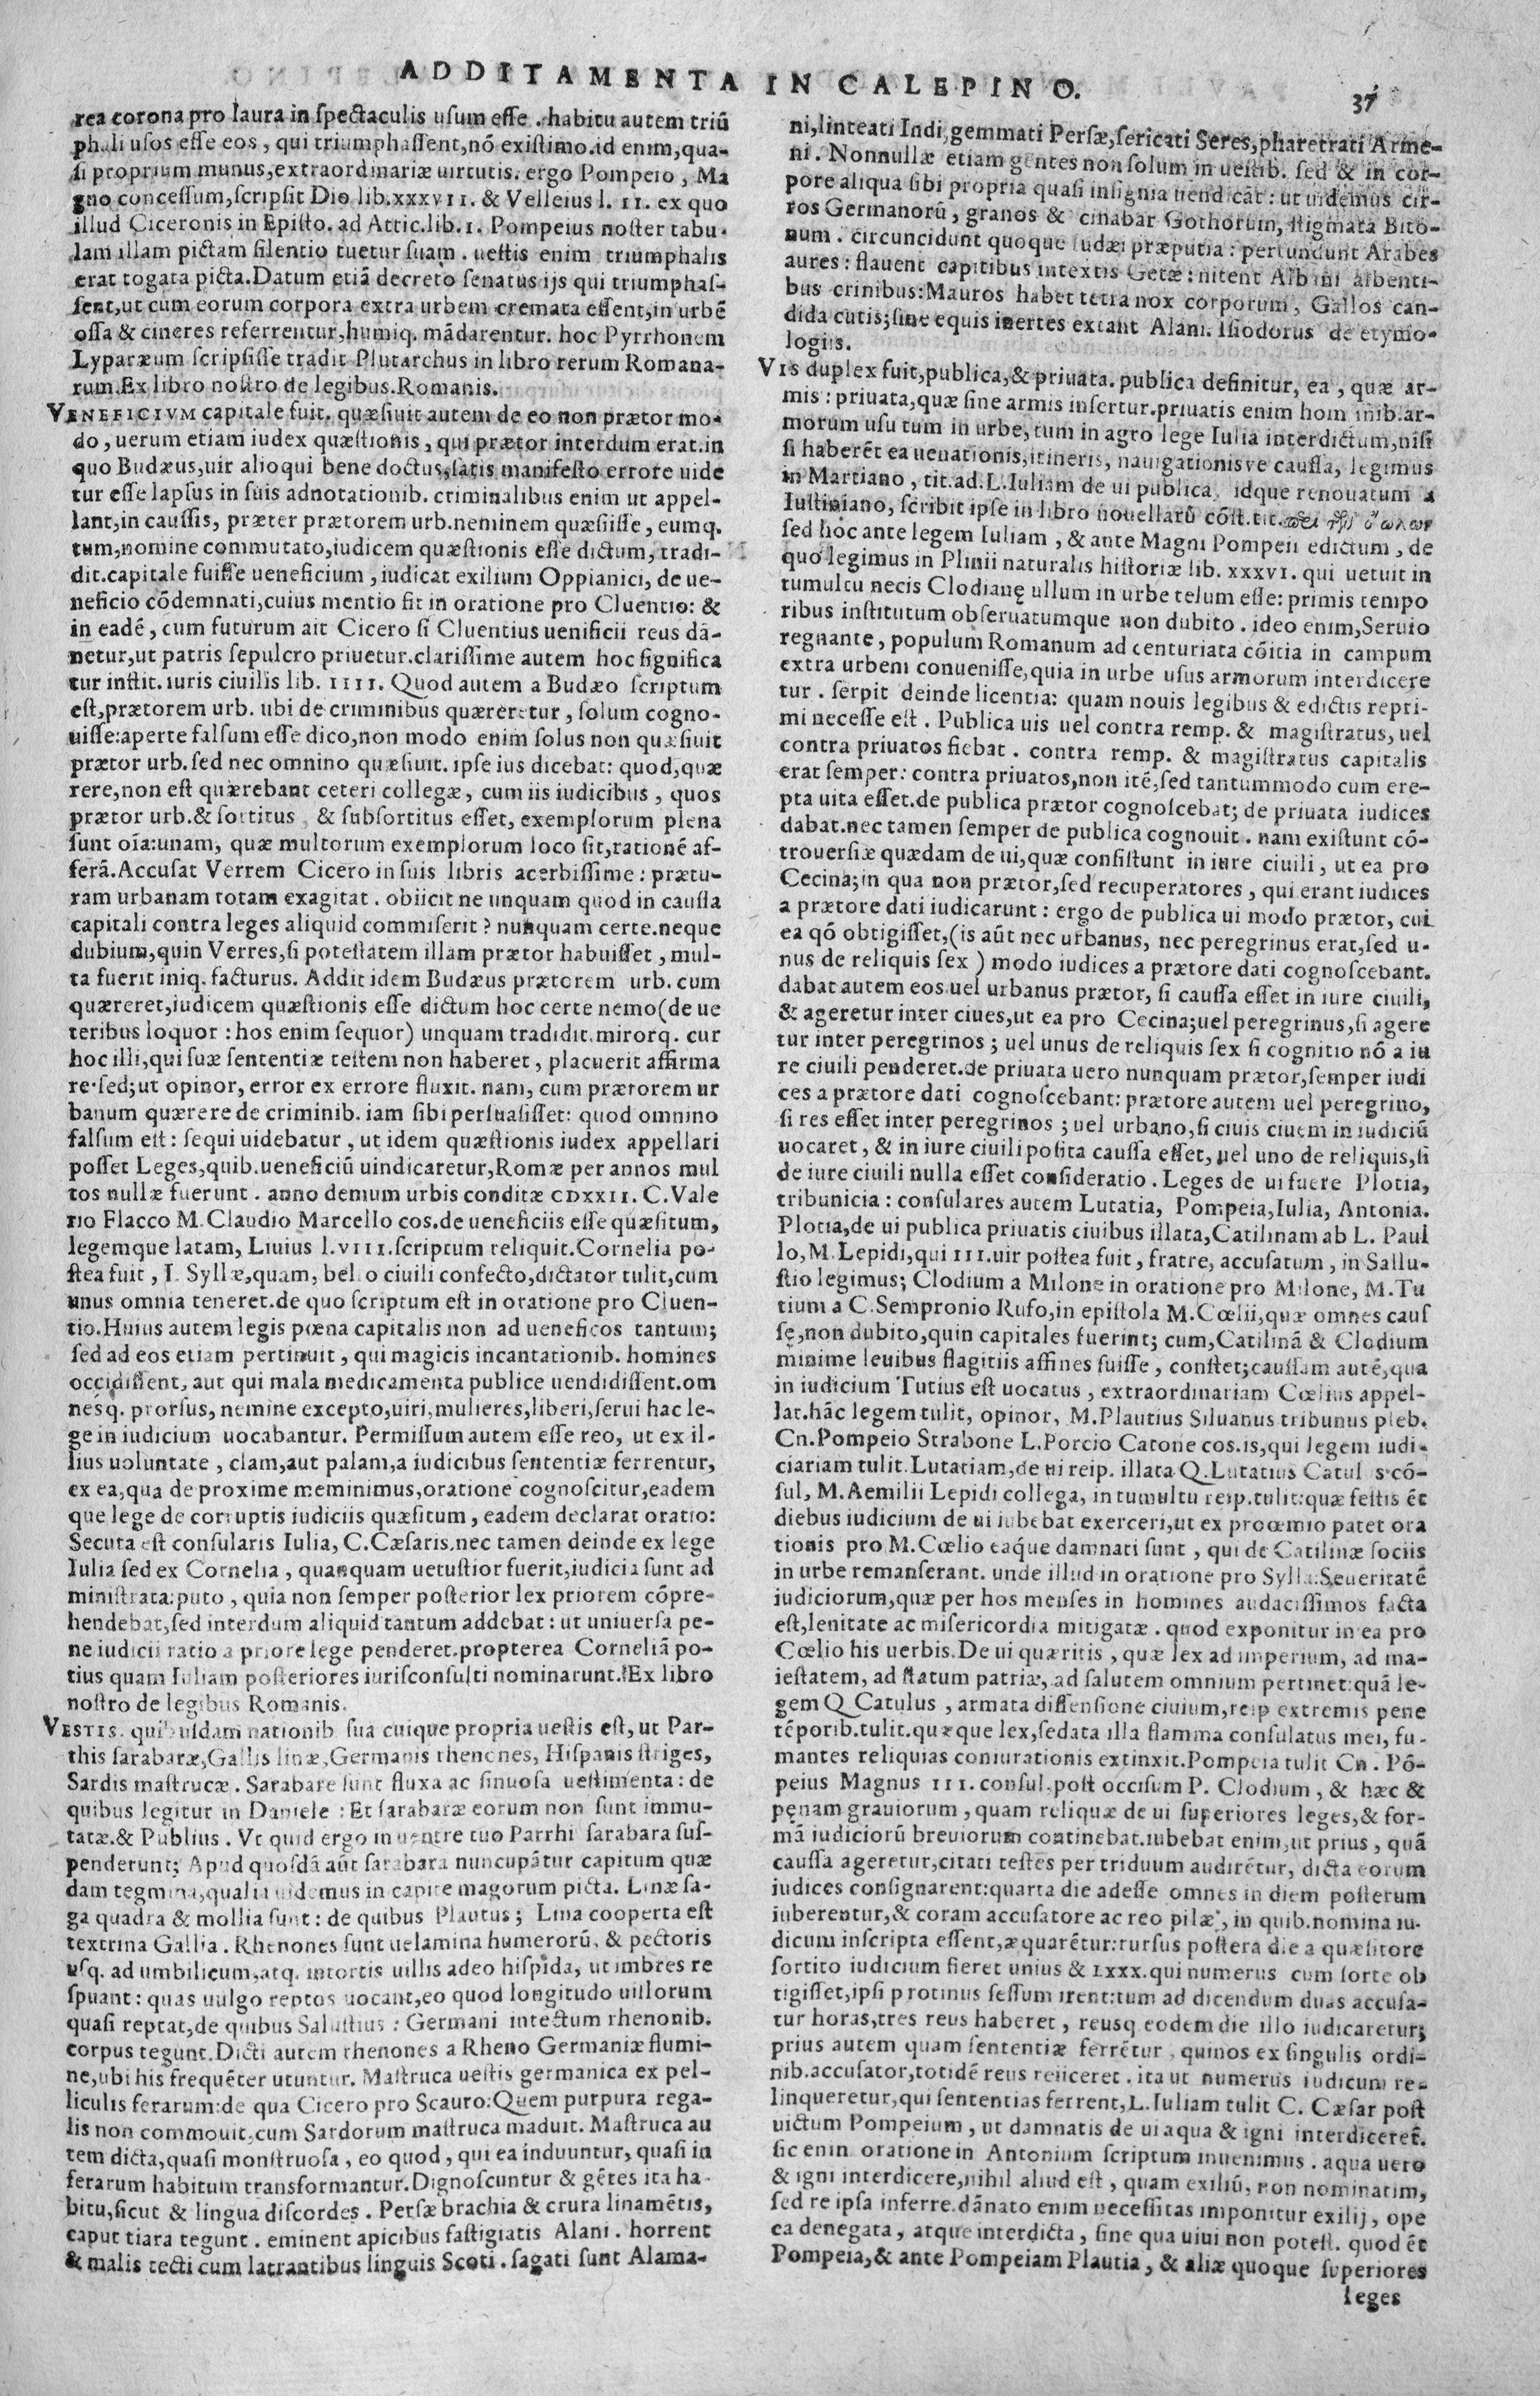 ADDITAMENTA IN CALEPINO.
37
rea corona pro laura in spectaculis usum esse . habitu autem triū
phali usos esse eos , qui triumphassent,nō existimo.id enim,qua-
si proprium munus,extraordinariæ uirtutis. ergo Pompeio , Ma
gno concessum,scripsit Dio lib.xxxvii. & Velleius l. ii. ex quo
illud Ciceronis in Episto. ad Attic.lib.i. Pompeius noster tabu-
lam illam pictam silentio tuetur suam . uestis enim triumphalis
erat togata picta.Datum etiā decreto senatus ijs qui triumphas-
sent,ut cum eorum corpora extra urbem cremata essent,in urbē
ossa & cineres referrentur,humiq. mādarentur. hoc Pyrrhonem
Lyparæum scripsisse tradit Plutarchus in libro rerum Romana-
rum.Ex libro nostro de legibus.Romanis.
VENEFICIVM capitale fuit. quæsiuit autem de eo non prætor mo-
do , uerum etiam iudex quæstionis , qui prætor interdum erat.in
quo Budæus,uir alioqui bene doctus,satis manifesto errore uide
tur esse lapsus in suis adnotationib. criminalibus enim ut appel-
lant,in caussis, præter prætorem urb.neminem quæsiisse , eumq.
tum,nomine commutato,iudicem quæstionis esse dictum, tradi-
dit.capitale fuisse ueneficium , iudicat exilium Oppianici, de ue-
neficio cōdemnati,cuius mentio fit in oratione pro Cluentio: &
in eadē , cum futurum ait Cicero si Cluentius uenificii reus dā-
netur,ut patris sepulcro priuetur.clarissime autem hoc significa
tur instit. iuris ciuilis lib. iiii. Quod autem a Budæo scriptum
est,prætorem urb. ubi de criminibus quæreretur , solum cogno-
uisse:aperte falsum esse dico,non modo enim solus non quæsiuit
prætor urb. sed nec omnino quæsiuit. ipse ius dicebat: quod,quæ
rere,non est quærebant ceteri collegæ , cum iis iudicibus , quos
prætor urb.& sortitus , & subsortitus esset, exemplorum plena
sunt oīa:unam, quæ multorum exemplorum loco sit,rationē af-
ferā.Accusat Verrem Cicero in suis libris acerbissime : prætu-
ram urbanam totam exagitat . obiicit ne unquam quod in caussa
capitali contra leges aliquid commiserit ? nunquam certe.neque
dubium,quin Verres,si potestatem illam prætor habuisset , mul-
ta fuerit iniq. facturus. Addit idem Budæus prætorem urb. cum
quæreret,iudicem quæstionis esse dictum hoc certe nemo(de ue
teribus loquor : hos enim sequor) unquam tradidit.mirorq. cur
hoc illi,qui suæ sententiæ testem non haberet , placuerit affirma
re·sed;ut opinor, error ex errore fluxit. nam, cum prætorem ur
banum quærere de criminib. iam sibi persuasisset: quod omnino
falsum est : sequi uidebatur , ut idem quæstionis iudex appellari
posset Leges,quib.ueneficiū uindicaretur,Romæ per annos mul
tos nullæ fuerunt . anno demum urbis conditæ CDXXII. C. Vale
rio Flacco M. Claudio Marcello cos.de ueneficiis esse quæsitum,
legemque latam, Liuius l.viii.scriptum reliquit.Cornelia po-
stea fuit , L Syllæ,quam, bello ciuili confecto,dictator tulit,cum
unus omnia teneret.de quo scriptum est in oratione pro Cluen-
tio.Huius autem legis pœna capitalis non ad ueneficos tantum;
sed ad eos etiam pertinuit , qui magicis incantationib. homines
occidissent, aut qui mala medicamenta publice uendidissent.om
nesq. prorsus, nemine excepto,uiri,mulieres,liberi,serui hac le-
ge in iudicium uocabantur. Permissum autem esse reo, ut ex il-
lius uoluntate , clam,aut palam,a iudicibus sententiæ ferrentur,
ex ea,qua de proxime meminimus,oratione cognoscitur,eadem
que lege de corruptis iudiciis quæsitum , eadem declarat oratio:
Secuta est consularis Iulia, C.Cæsaris.nec tamen deinde ex lege
Iulia sed ex Cornelia , quanquam uetustior fuerit,iudicia sunt ad
ministrata:puto , quia non semper posterior lex priorem cōpre-
hendebat,sed interdum aliquid tantum addebat : ut uniuersa pe-
ne iudicii ratio a priore lege penderet.propterea Corneliā po-
tius quam Iuliam posteriores iurisconsulti nominarunt.Ex libro
nostro de legibus Romanis.
VESTIS. quibusdam nationib. sua cuique propria uestis est, ut Par-
this sarabaræ,Gallis linæ,Germanis rhenones, Hispanis striges,
Sardis mastrucæ . Sarabare sunt fluxa ac sinuosa uestimenta : de
quibus legitur in Daniele : Et sarabaræ eorum non sunt immu-
tatæ.& Publius . Vt quid ergo in uentre tuo Parrhi sarabara sus-
penderunt; Apud quosdā aūt sarabara nuncupātur capitum quæ
dam tegmina,qualia uidemus in capite magorum picta. Linæ sa-
ga quadra & mollia sunt : de quibus Plautus ; Lina cooperta est
textrina Gallia . Rhenones sunt uelamina humerorū, & pectoris
usq. ad umbilicum,atq. intortis uillis adeo hispida, ut imbres re
spuant : quas uulgo reptos uocant,eo quod longitudo uillorum
quasi reptat,de quibus Salustius : Germani intectum rhenonib.
corpus tegunt.Dicti autem rhenones a Rheno Germaniæ flumi-
ne,ubi his frequēter utuntur. Mastruca uestis germanica ex pel-
liculis ferarum:de qua Cicero pro Scauro:Quem purpura rega-
lis non commouit,cum Sardorum mastruca maduit. Mastruca au
tem dicta,quasi monstruosa , eo quod , qui ea induuntur, quasi in
ferarum habitum transformantur.Dignoscuntur & gētes ita ha-
bitu,sicut & lingua discordes . Persæ brachia & crura linamētis,
caput tiara tegunt . eminent apicibus fastigiatis Alani . horrent
& malis tecti cum latrantibus linguis Scoti . sagati sunt Alama-
ni,linteati Indi,gemmati Persæ,sericati Seres,pharetrati Arme-
ni . Nonnullæ etiam gentes non solum in uestib. sed & in cor-
pore aliqua sibi propria quasi insignia uendicāt : ut uidemus cir-
ros Germanorū , granos & cinabar Gothorum, stigmata Bito-
num . circuncidunt quoque Iudæi præputia : pertundunt Arabes
aures : flauent capitibus intextis Getæ : nitent Albini albenti-
bus crinibus:Mauros habet tetra nox corporum , Gallos can-
dida cutis;sine equis inertes extant Alani. Isiodorus de etymo-
logiis.
VIS duplex fuit,publica,& priuata. publica definitur, ea , quæ ar-
mis : priuata,quæ sine armis infertur.priuatis enim hominib.ar-
morum usu tum in urbe,tum in agro lege Iulia interdictum,nisi
si haberēt ea uenationis,itineris, nauigationisve caussa, legimus
in Martiano , tit.ad.L.Iuliam de ui publica, idque renouatum a
Iustiniano, scribit ipse in libro nouellarū cōst.tit.
sed hoc ante legem Iuliam , & ante Magni Pompeii edictum , de
quo legimus in Plinii naturalis historiæ lib. xxxvi. qui uetuit in
tumultu necis Clodianę ullum in urbe telum esse: primis tempo
ribus institutum obseruatumque non dubito . ideo enim,Seruio
regnante , populum Romanum ad centuriata cōitia in campum
extra urbem conuenisse,quia in urbe usus armorum interdicere
tur . serpit deinde licentia: quam nouis legibus & edictis repri-
mi necesse est . Publica uis uel contra remp. & magistratus, uel
contra priuatos fiebat . contra remp. & magistratus capitalis
erat semper: contra priuatos,non itē,sed tantummodo cum ere-
pta uita esset.de publica prætor cognoscebat; de priuata iudices
dabat.nec tamen semper de publica cognouit . nam existunt cō-
trouersiæ quædam de ui,quæ consistunt in iure ciuili , ut ea pro
Cecina;in qua non prætor,sed recuperatores , qui erant iudices
a prætore dati iudicarunt : ergo de publica ui modo prætor, cui
ea qō obtigisset,(is aūt nec urbanus, nec peregrinus erat,sed u-
nus de reliquis sex ) modo iudices a prætore dati cognoscebant.
dabat autem eos uel urbanus prætor, si caussa esset in iure ciuili,
& ageretur inter ciues,ut ea pro Cecina;uel peregrinus,si agere
tur inter peregrinos ; uel unus de reliquis sex si cognitio nō a iu
re ciuili penderet.de priuata uero nunquam prætor,semper iudi
ces a prætore dati cognoscebant: prætore autem uel peregrino,
si res esset inter peregrinos ; uel urbano,si ciuis ciuem in iudiciū
uocaret , & in iure ciuili posita caussa esset, uel uno de reliquis,si
de iure ciuili nulla esset consideratio . Leges de ui fuere Plotia,
tribunicia : consulares autem Lutatia, Pompeia,Iulia, Antonia.
Plotia,de ui publica priuatis ciuibus illata,Catilinam ab L. Paul
lo,M. Lepidi,qui iii.uir postea fuit , fratre, accusatum , in Sallu-
stio legimus; Clodium a Milone in oratione pro Milone, M.Tu
tium a C.Sempronio Rufo,in epistola M.Cœlii,quæ omnes caus
sę,non dubito,quin capitales fuerint; cum,Catilinā & Clodium
minime leuibus flagitiis affines fuisse , constet;caussam autē,qua
in iudicium Tutius est uocatus , extraordinariam Cœlius appel-
lat.hāc legem tulit, opinor, M.Plautius Siluanus tribunus pleb.
Cn.Pompeio Strabone L.Porcio Catone cos.is,qui legem iudi-
ciariam tulit.Lutatiam,de ui reip. illata Q.Lutatius Catulus cō-
sul, M.Aemilii Lepidi collega, in tumultu reip.tulit:quæ festis ēt
diebus iudicium de ui iubebat exerceri,ut ex proœmio patet ora
tionis pro M.Cœlio eaque damnati sunt , qui de Catilinæ sociis
in urbe remanserant. unde illud in oratione pro Sylla:Seueritatē
iudiciorum,quæ per hos menses in homines audacissimos facta
est,lenitate ac misericordia mitigatæ . quod exponitur in ea pro
Cœlio his uerbis.De ui quæritis , quæ lex ad imperium, ad ma-
iestatem, ad statum patriæ, ad salutem omnium pertinet:quā le-
gem Q Catulus , armata dissensione ciuium,reip extremis pene
tēporib.tulit.quæque lex,sedata illa flamma consulatus mei, fu-
mantes reliquias coniurationis extinxit.Pompeia tulit Cn . Pō-
peius Magnus iii.consul.post occisum P. Clodium , & hæc &
pęnam grauiorum , quam reliquæ de ui superiores leges,& for-
mā iudiciorū breuiorum continebat.iubebat enim,ut prius , quā
caussa ageretur,citati testes per triduum audirētur, dicta eorum
iudices consignarent:quarta die adesse omnes in diem posterum
iuberentur,& coram accusatore ac reo pilæ , in quib.nomina iu-
dicum inscripta essent,æquarētur:rursus postera die a quæsitore
sortito iudicium fieret unius & LXXX.qui numerus cum sorte ob
tigisset,ipsi protinus sessum irent:tum ad dicendum duas accusa-
tur horas,tres reus haberet , reusq eodem die illo iudicaretur;
prius autem quam sententiæ ferrētur , quinos ex singulis ordi-
nib.accusator,totidē reus reiiceret . ita ut numerus iudicum re-
linqueretur,qui sententias ferrent,L.Iuliam tulit C. Cæsar post
uictum Pompeium , ut damnatis de ui aqua & igni interdiceret̄.
sic enin oratione in Antonium scriptum inuenimus . aqua uero
& igni interdicere,nihil aliud est , quam exiliū, non nominatim,
sed re ipsa inferre.dānato enim necessitas imponitur exilij, ope
ea denegata, atque interdicta, sine qua uiui non potest. quod ēt
Pompeia,& ante Pompeiam Plautia , & aliæ quoque superiores
leges